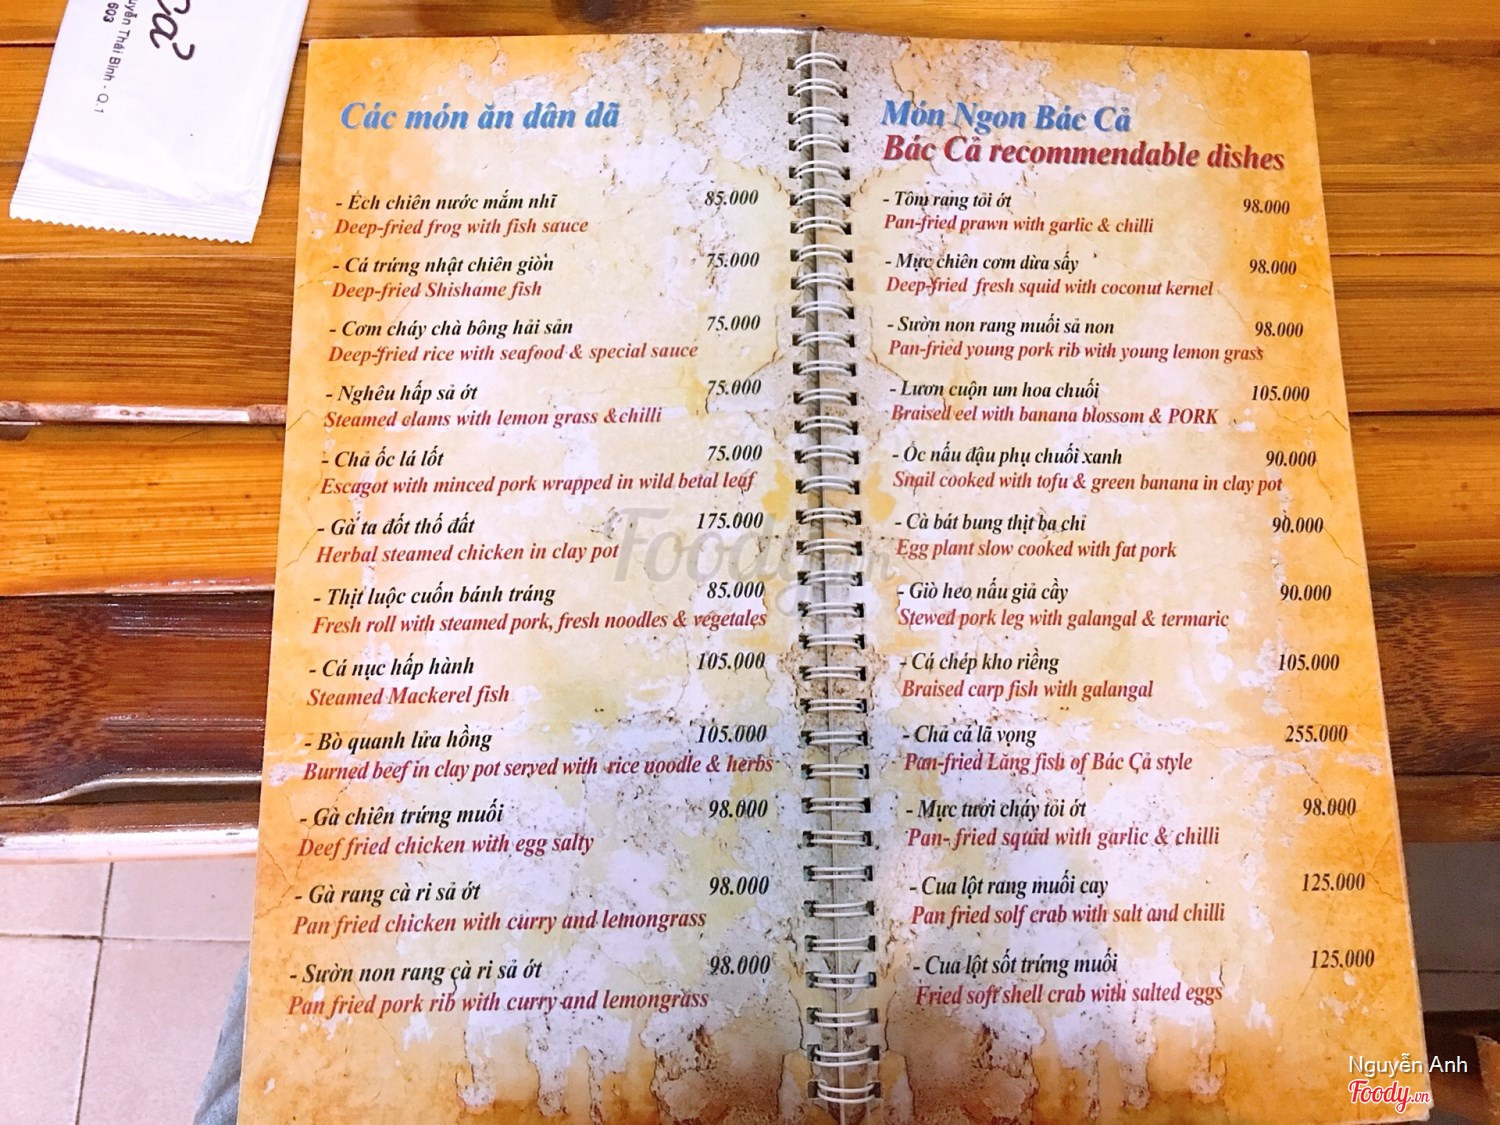 Cả
uyễn Thái Bình - Q.1
603
Các món ăn dân dã
- Ếch chiên nước mắm nhĩ 85.000
Deep-fried frog with fish sauce
- Cá trứng nhật chiên giòn 75.000
Deep-fried Shishame fish
- Cơm cháy chà bông hải sản 75.000
Deep-fried rice with seafood & special sauce
- Nghêu hấp sả ớt 75.000
Steamed clams with lemon grass &chilli
- Chả ốc lá lốt 75.000
Escagot with minced pork wrapped in wild betal leaf
- Gà ta đốt thố đất 175.000
Herbal steamed chicken in clay pot
- Thịt luộc cuốn bánh tráng 85.000
Fresh roll with steamed pork, fresh noodles & vegetales
- Cá nục hấp hành 105.000
Steamed Mackerel fish
- Bò quanh lửa hồng 105.000
Burned beef in clay pot served with rice noodle & herbs
- Gà chiên trứng muối 98.000
Deef fried chicken with egg salty
- Gà rang cà ri sả ớt 98.000
Pan fried chicken with curry and lemongrass
- Sườn non rang cà ri sả ớt 98.000
Pan fried pork rib with curry and lemongrass
Món Ngon Bác Cả
Bác Cả recommendable dishes
- Tôm rang tỏi ớt 98.000
Pan-fried prawn with garlic & chilli
- Mực chiên cơm dừa sấy 98.000
Deep-fried fresh squid with coconut kernel
- Sườn non rang muối sả non 98.000
Pan-fried young pork rib with young lemon grass
- Lươn cuộn um hoa chuối 105.000
Braised eel with banana blossom & PORK
- Ốc nấu đậu phụ chuối xanh 90.000
Snail cooked with tofu & green banana in clay pot
- Cà bát bung thịt ba chỉ 90.000
Egg plant slow cooked with fat pork
- Giò heo nấu giả cầy 90.000
Stewed pork leg with galangal & termaric
- Cá chép kho riềng 105.000
Braised carp fish with galangal
- Chả cá lã vọng 255.000
Pan-fried Lăng fish of Bác Cả style
- Mực tươi cháy tỏi ớt 98.000
Pan- fried squid with garlic & chilli
- Cua lột rang muối cay 125.000
Pan fried solf crab with salt and chilli
- Cua lột sốt trứng muối 125.000
Fried soft shell crab with salted eggs
Foody.vn
Nguyễn Anh
Foody.vn